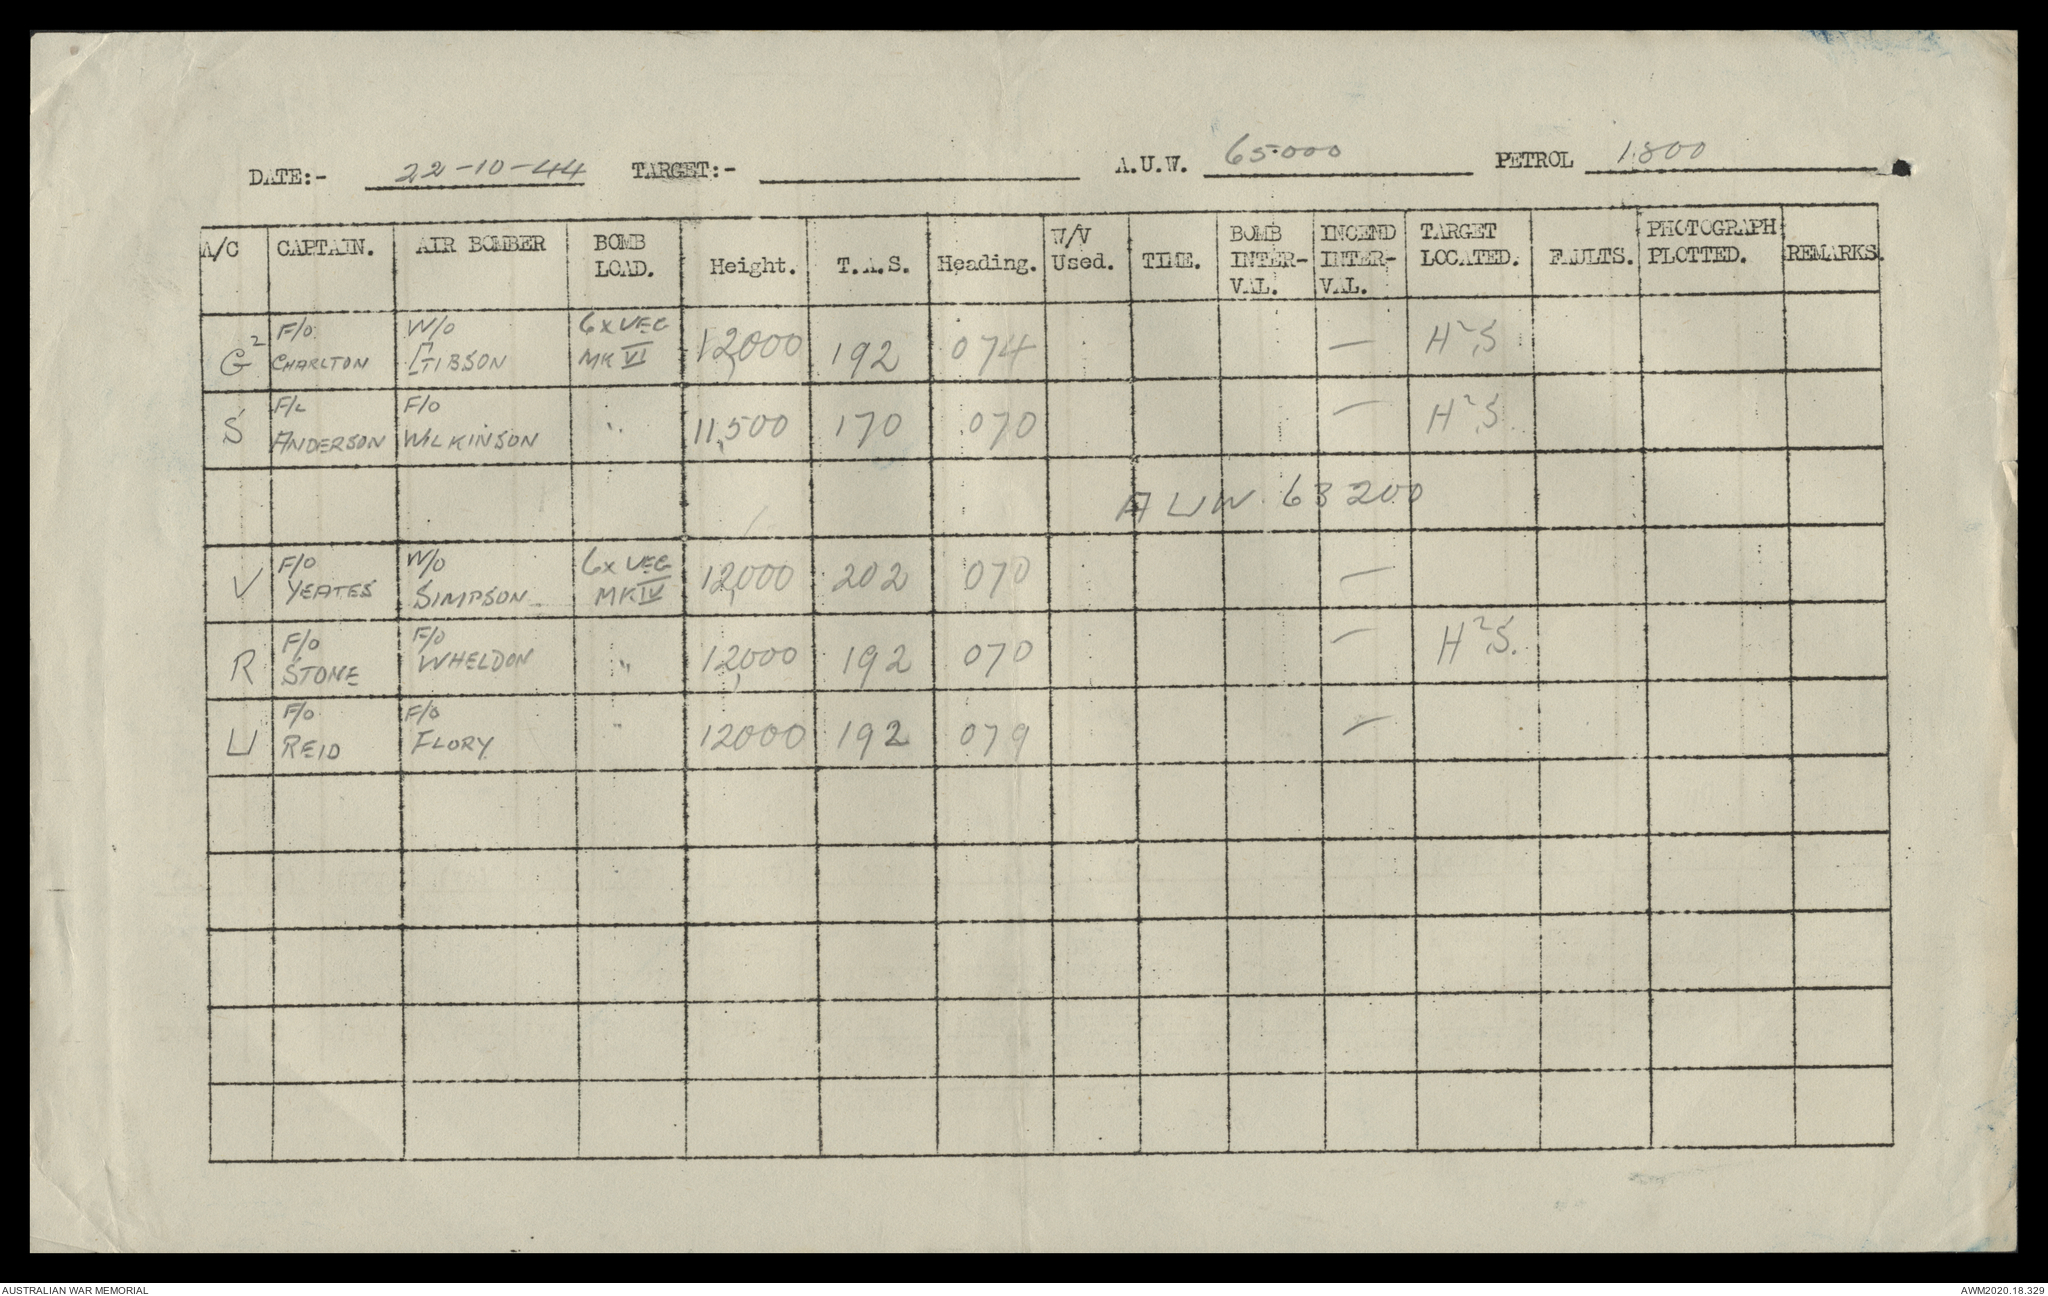 DATE:- 22-10-44 TARGET:- A.U.W. 65000 PETROL 1800
A/C CAPTAIN. AIR BOMBER BOMB LOAD. Height. T.A.S. Heading. W/V Used. TIME. BOMB INTER-VAL. INCEND INTER-VAL. TARGET LOCATED. FAULTS. PHOTOGRAPH PLOTTED. REMARKS.
G² F/O CHARLTON W/O GIBSON 6 x VEG MK VI 12,000 192 074 — H²S
S F/L ANDERSON F/O WILKINSON " 11,500 170 070 — H²S
A U W 63200
V F/O YEATES W/O SIMPSON 6 x VEG MK IV 12,000 202 070 —
R F/O STONE F/O WHELDON " 12,000 192 070 — H²S.
U F/O REID F/O FLORY " 12000 192 079 —
AUSTRALIAN WAR MEMORIAL AWM2020.18.329